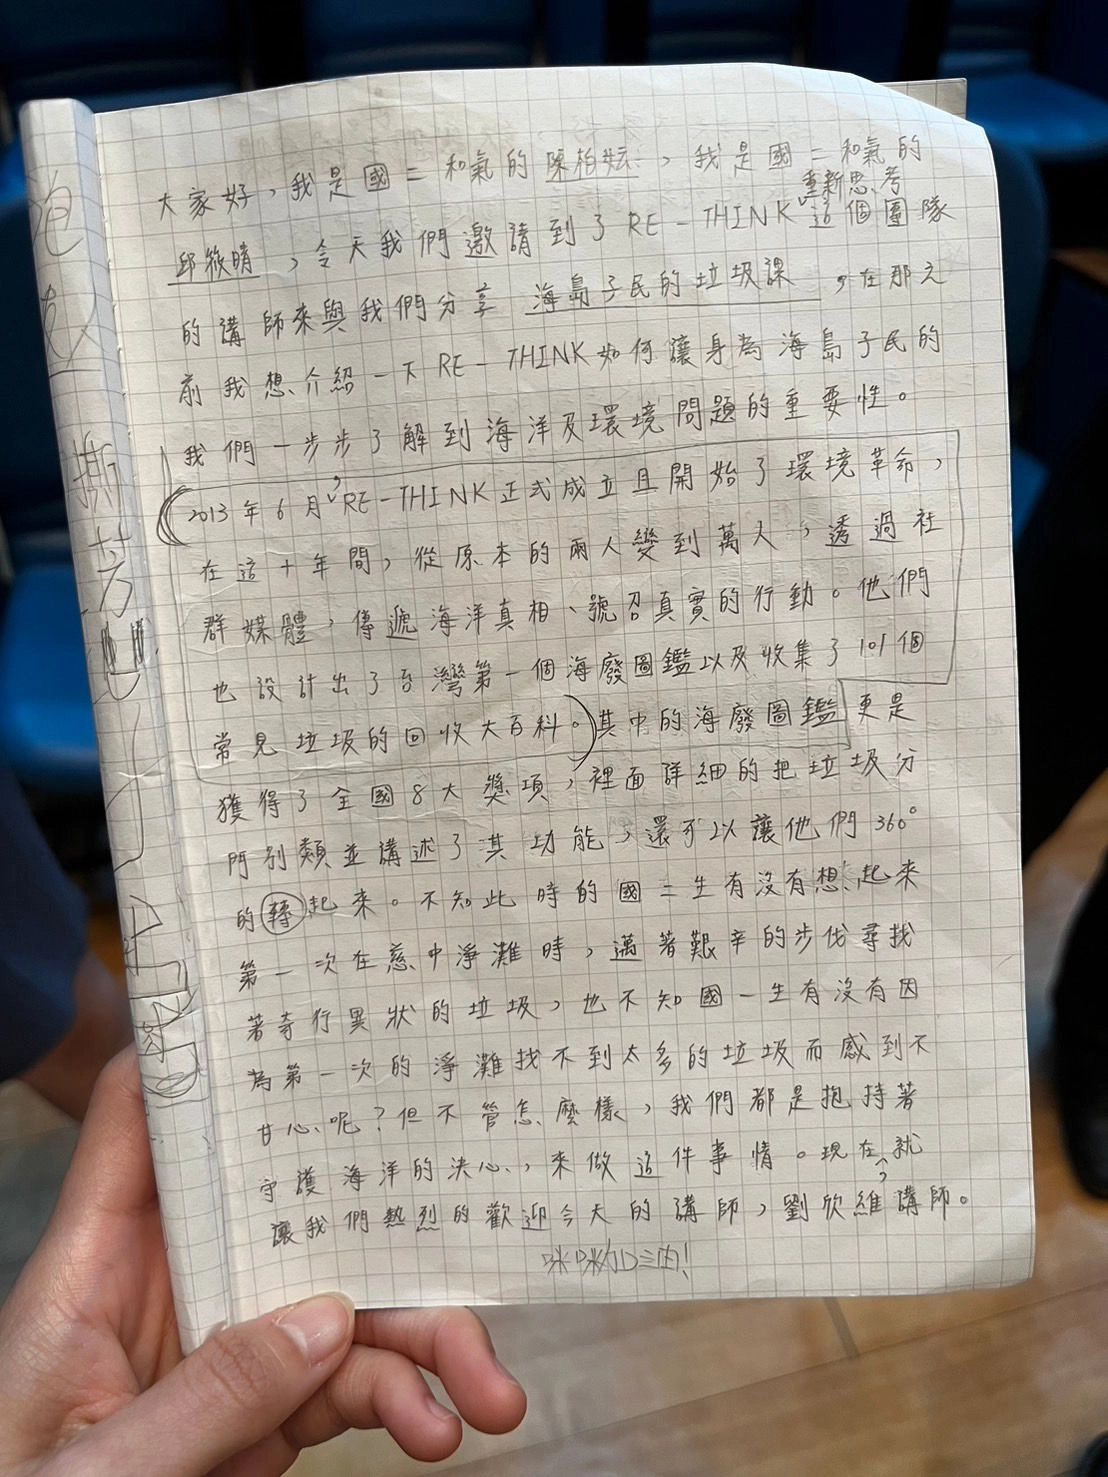 大家好，我是國二和氣的陳柏妘，我是國二和氣的
重新思考
邱筱晴，今天我們邀請到了RE-THINK這個團隊
的講師來與我們分享 海島子民的垃圾課，在那之
前我想介紹一下RE-THINK如何讓身為海島子民的
我們一步步了解到海洋及環境問題的重要性。
2013年6月，RE-THINK正式成立且開始了環境革命，
在這十年間，從原本的兩人變到萬人，透過社
群媒體，傳遞海洋真相、號召真實的行動。他們
也設計出了台灣第一個海廢圖鑑以及收集了101個
常見垃圾的回收大百科。其中的海廢圖鑑更是
獲得了全國8大獎項，裡面詳細的把垃圾分
門別類並講述了其功能，還可以讓他們360°
的轉起來。不知此時的國二生有沒有想起來
第一次在慈中淨灘時，邁著艱辛的步伐尋找
著奇行異狀的垃圾，也不知國一生有沒有因
為第一次的淨灘找不到太多的垃圾而感到不
甘心呢？但不管怎麼樣，我們都是抱持著
守護海洋的決心，來做這件事情。現在，就
讓我們熱烈的歡迎今天的講師，劉欣維講師。
咪咪加油！